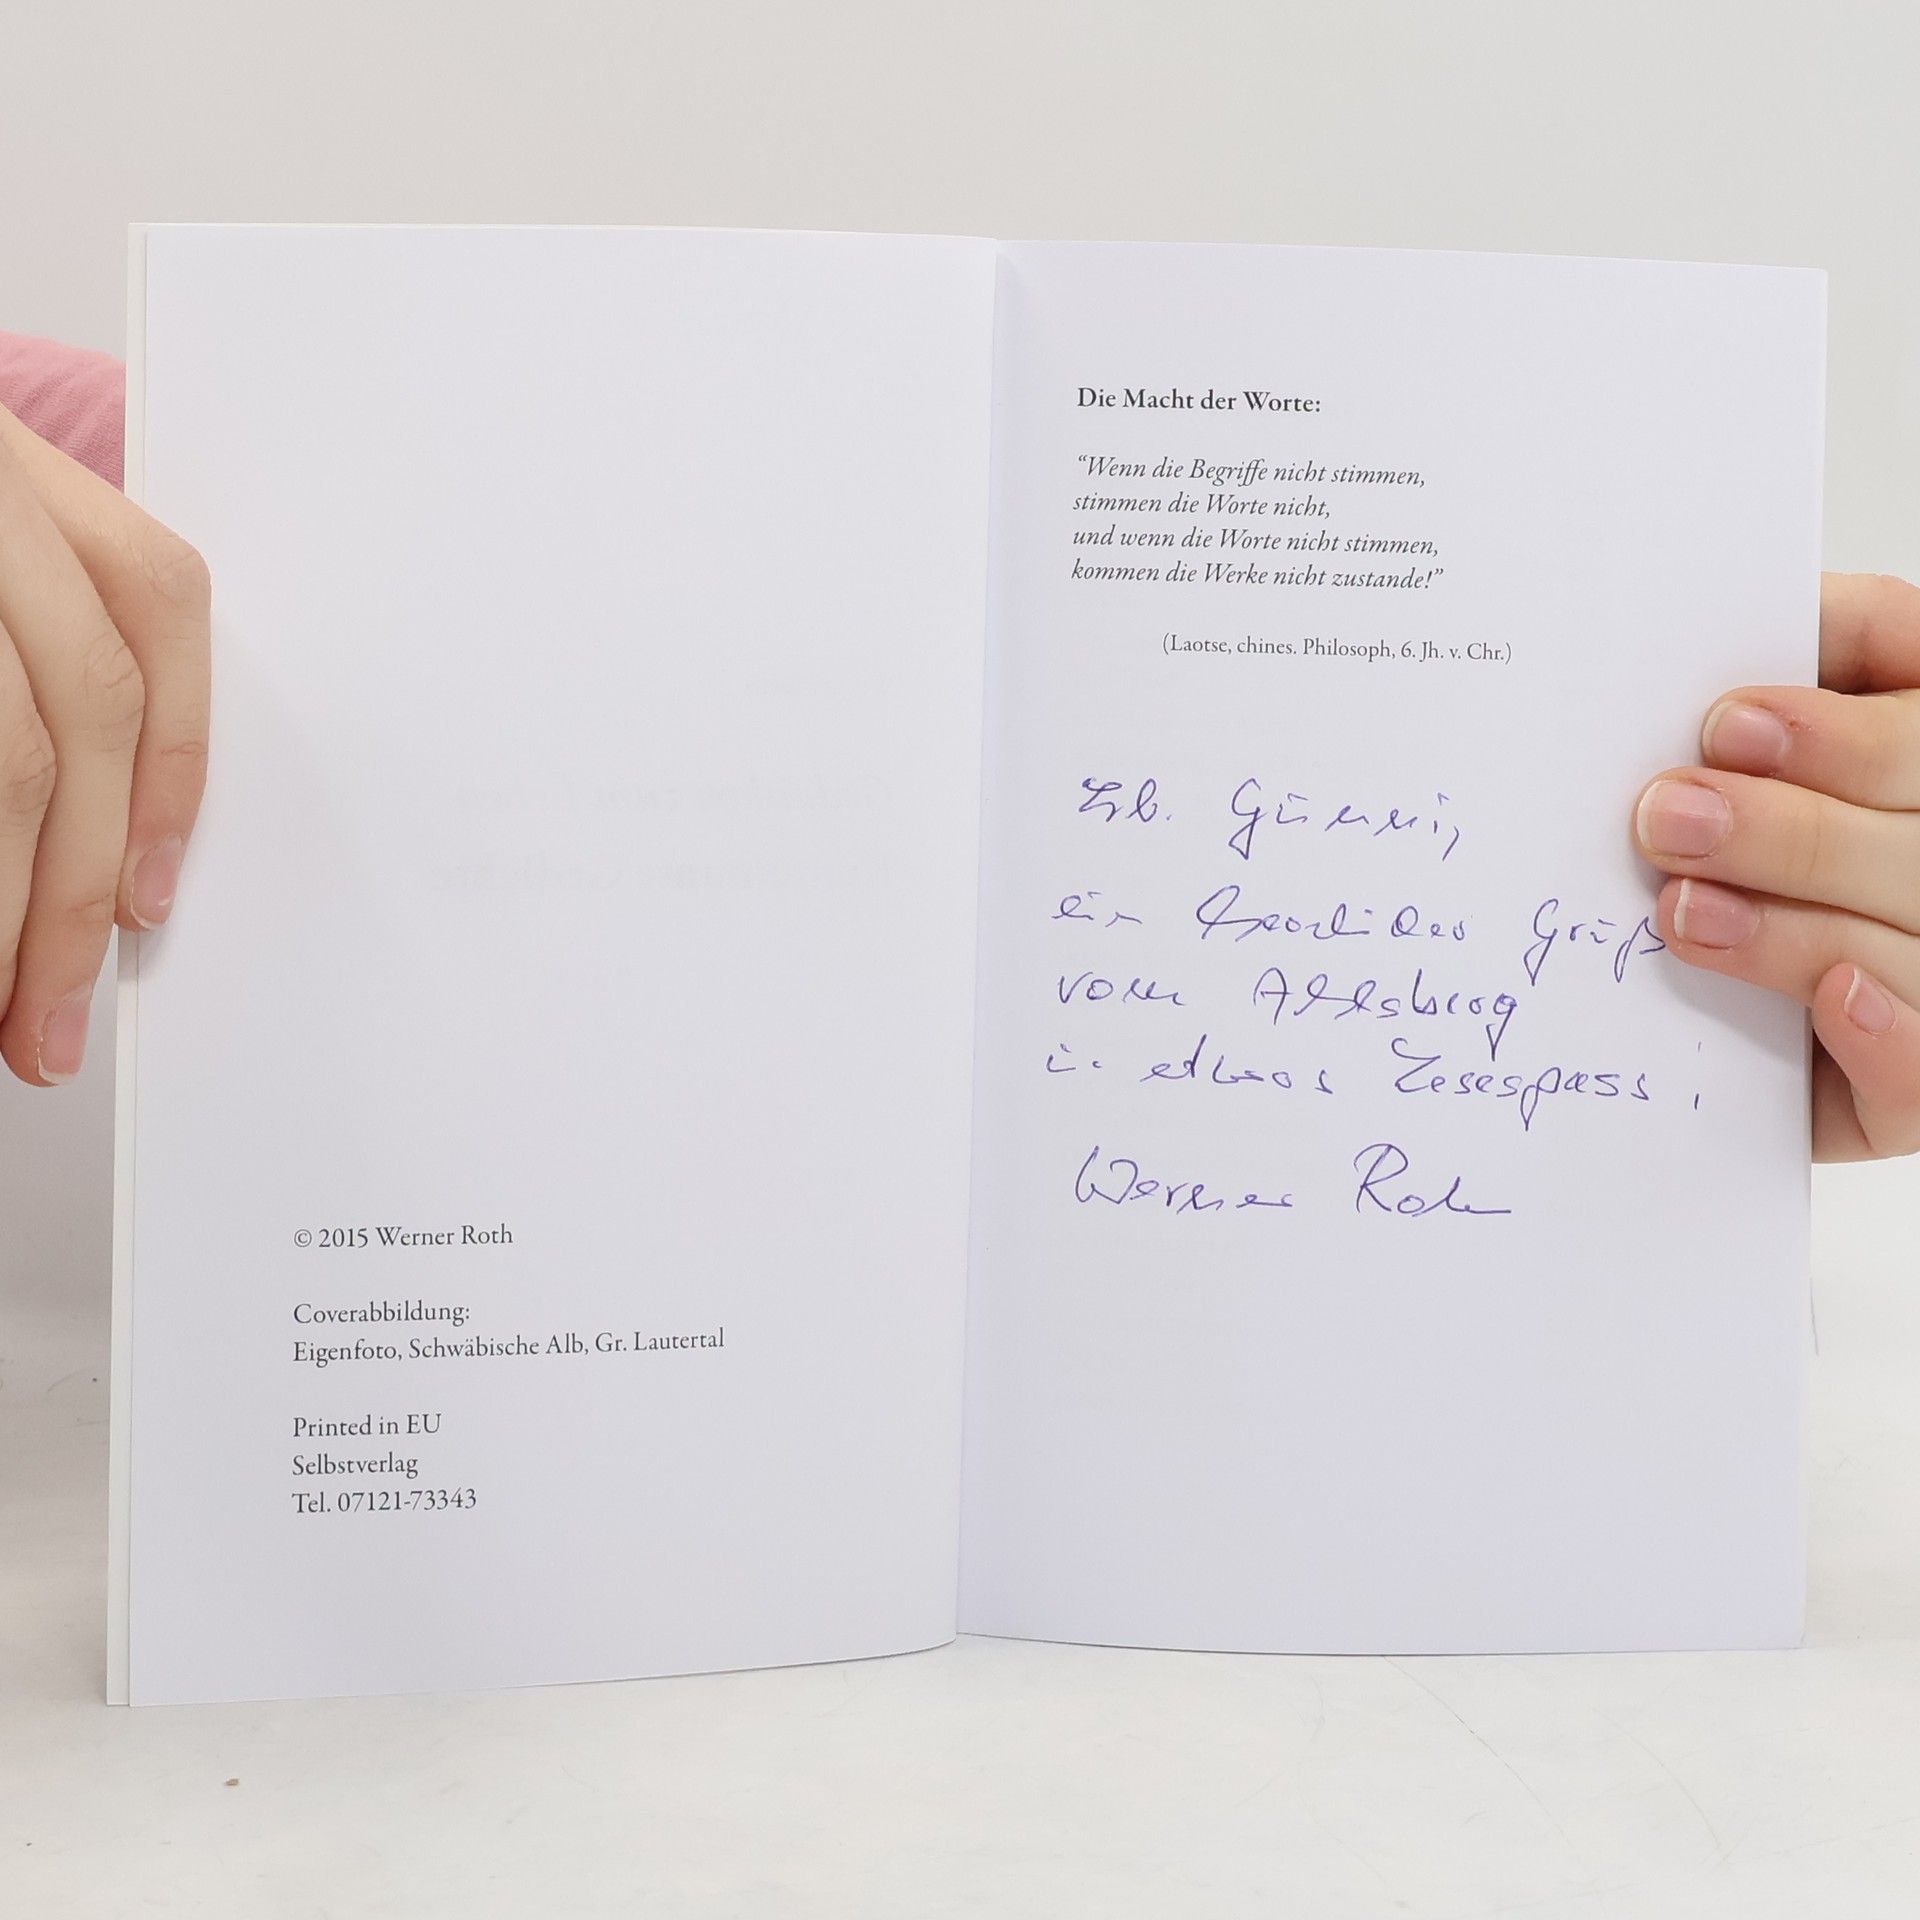 © 2015 Werner Roth
Coverabbildung:
Eigenfoto, Schwäbische Alb, Gr. Lautertal
Printed in EU
Selbstverlag
Tel. 07121-73343
Die Macht der Worte:
“Wenn die Begriffe nicht stimmen,
stimmen die Worte nicht,
und wenn die Worte nicht stimmen,
kommen die Werke nicht zustande!”
(Laotse, chines. Philosoph, 6. Jh. v. Chr.)
Lb.
ein herzliches Gruß
vom
etwas Lesespass!
Werner Roth